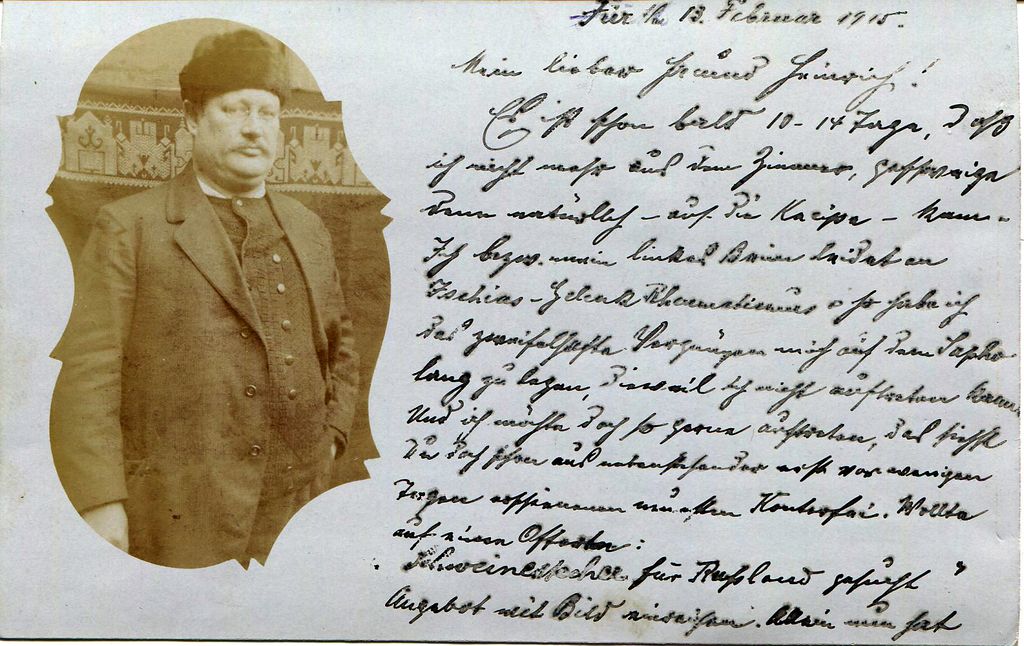 Fürth 13. Februar 1915.
Mein lieber Freund Heinrich!
Es ist schon bald 10-14 Tage, daß
ich nicht mehr aus dem Zimmer, geschweige
denn natürlich - auf die Kneipe - kam.
Ich bezw. mein linkes Bein leidet an
Ischias-Gelenk Rheumatismus u so habe ich
das zweifelhafte Vergnügen mich auf dem Sopha
lang zu legen, dieweil ich nicht auftreten kann.
Und ich möchte doch so gerne auftreten, das siehst
Du doch schon aus nebenstehender erst vor wenigen
Tagen erschienenen neuesten Konterfei. Wollte
auf einen Offerten:
"Schweinestecher für Rußland gesucht"
Angebot mit Bild einreichen. Allein nun hat